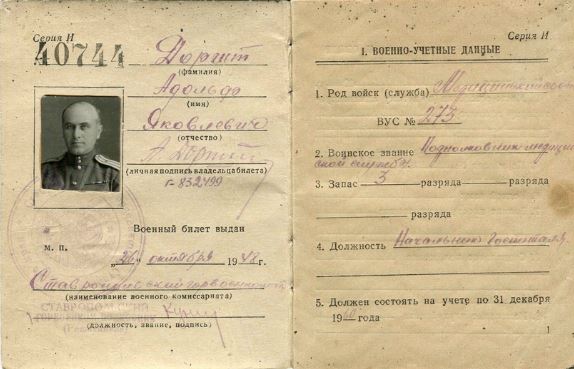 Серия И
40744
Доршт
(фамилия)
Адольф
(имя)
Яковлевич
(отчество)
(личная подпись владельца билета)
г-832499
Военный билет выдан
М. П.
„26" октября 1948г.
Ставропольский горвоенкомат
(наименование военного комиссариата)
(должность, звание, подпись)
Серия И
I. ВОЕННО-УЧЕТНЫЕ ДАННЫЕ
1. Род войск (служба)
ВУС № 273
2. Воинское звание Подполковник медицин
ской службы
3. Запас 3 разряда разряда
разряда
4. Должность Начальник госпиталя
5. Должен состоять на учете по 31 декабря
19 года
1